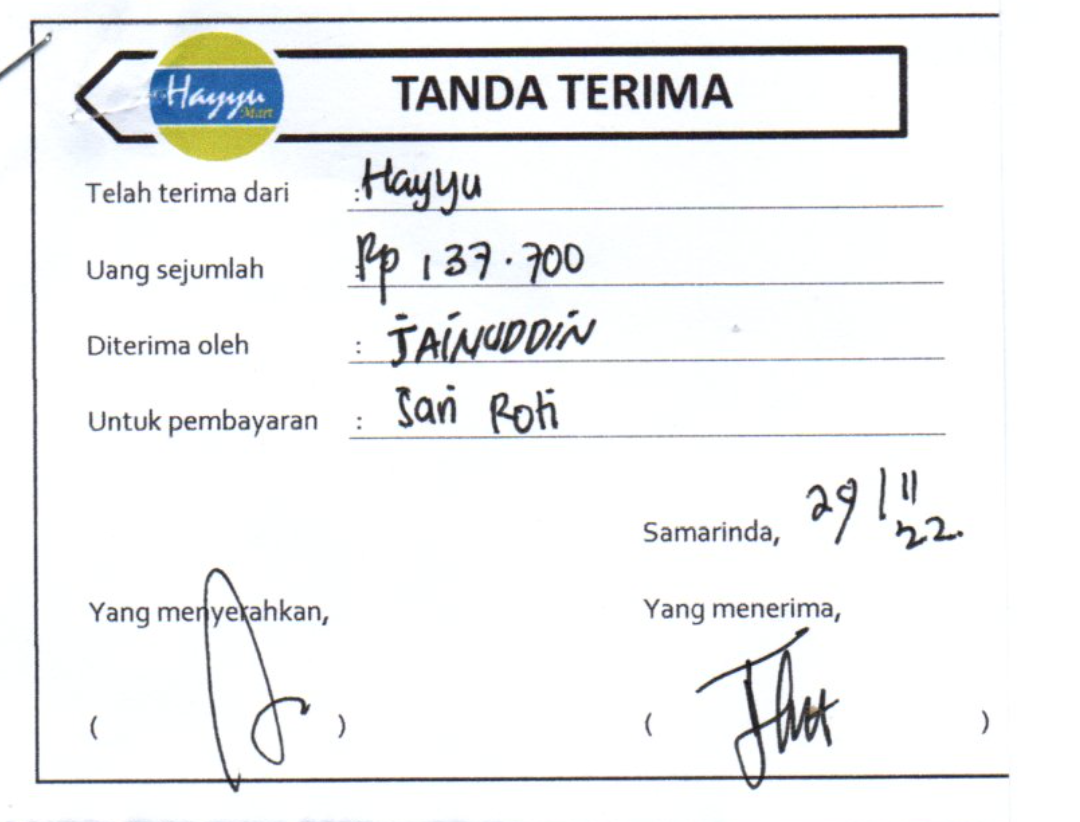 Hayyu
Mart
TANDA TERIMA
Telah terima dari : Hayyu
Uang sejumlah : Rp 137.700
Diterima oleh : JAINUDDIN
Untuk pembayaran : Sari Roti
Samarinda, 29/11
22.
Yang menyerahkan, Yang menerima,
( ) ( )